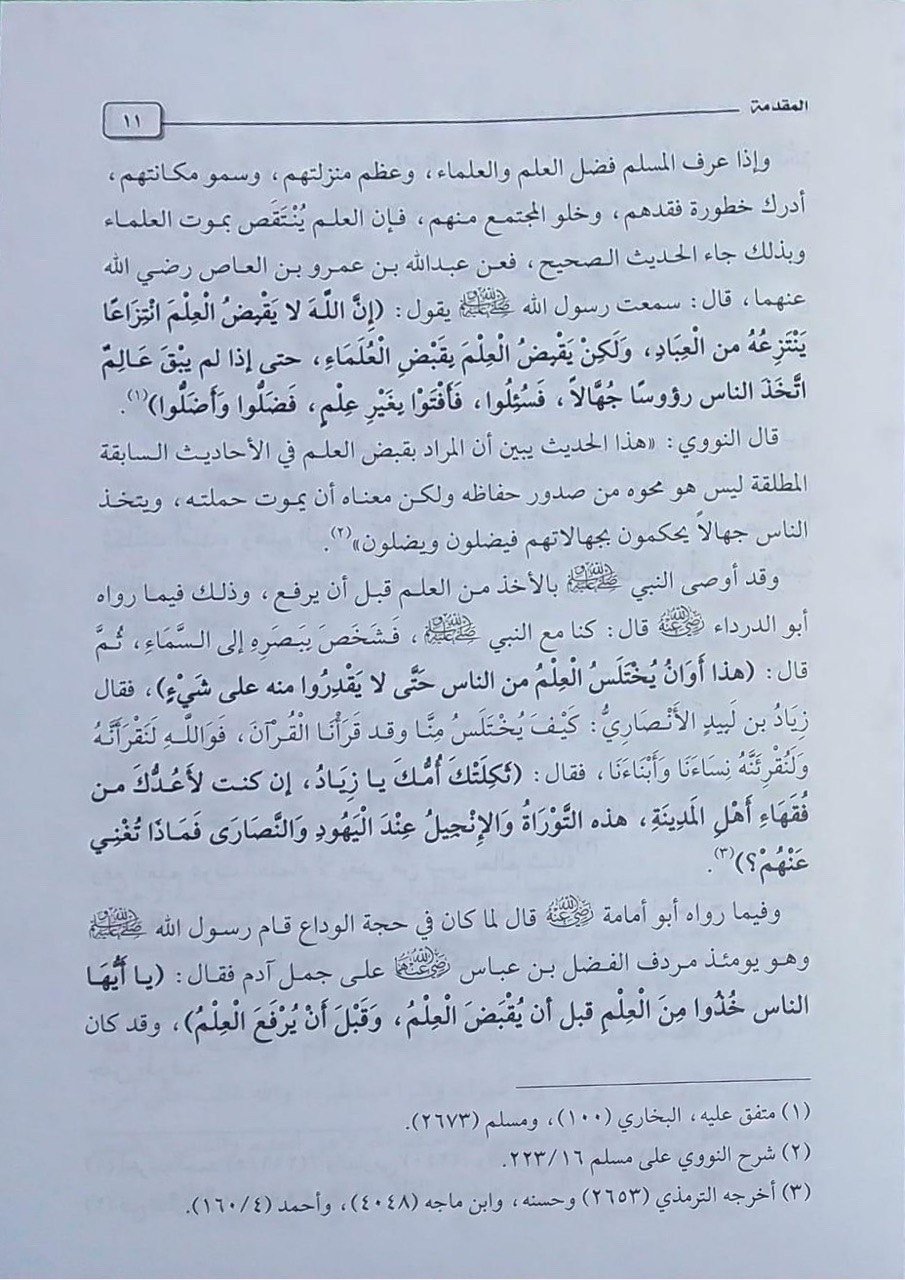 المقدمة
١١
وإذا عرف المسلم فضل العلم والعلماء، وعظم منزلتهم، وسمو مكانتهم،
أدرك خطورة فقدهم، وخلو المجتمع منهم، فإن العلم يُنْتَقَص بموت العلماء
وبذلك جاء الحديث الصحيح، فعن عبدالله بن عمرو بن العاص رضي الله
عنهما، قال: سمعت رسول الله ﷺ يقول: (إِنَّ اللَّهَ لا يَقْبِضُ الْعِلْمَ انْتِزَاعًا
يَنْتَزِعُهُ من الْعِبَادِ، وَلَكِنْ يَقْبِضُ الْعِلْمَ بِقَبْضِ الْعُلَمَاءِ، حتى إذا لم يبْقَ عَالِمٌ
اتَّخَذَ الناس رؤوسًا جُهَّالاً، فَسُئِلُوا، فَأَفْتَوْا بِغَيْرِ عِلْمٍ، فَضَلُّوا وَأَضَلُّوا)(١).
قال النووي: «هذا الحديث يبين أن المراد بقبض العلم في الأحاديث السابقة
المطلقة ليس هو محوه من صدور حفاظه ولكن معناه أن يموت حملته، ويتخذ
الناس جهالاً يحكمون بجهالاتهم فيضلون ويضلون»(٢).
وقد أوصى النبي ﷺ بالأخذ من العلم قبل أن يرفع، وذلك فيما رواه
أبو الدرداء رضي الله عنه قال: كنا مع النبي ﷺ، فَشَخَصَ بِبَصَرِهِ إلى السَّمَاءِ، ثُمَّ
قال: (هذا أَوَانُ يُخْتَلَسُ الْعِلْمُ من الناس حَتَّى لا يَقْدِرُوا منه على شَيْءٍ)، فقال
زِيَادُ بن لَبِيدٍ الأَنْصَارِيُّ: كَيْفَ يُخْتَلَسُ مِنَّا وقد قَرَأْنَا الْقُرآنَ، فَوَاللَّهِ لَنَقْرَأَنَّهُ
وَلَنُقْرِئَنَّهُ نِسَاءَنَا وَأَبْنَاءَنَا، فقال: (ثَكِلَتْكَ أُمُّكَ يا زِيَادُ، إن كنت لأَعُدُّكَ من
فُقَهَاءِ أَهْلِ المَدِينَةِ، هذه التَّوْرَاةُ وَالإِنْجِيلُ عِنْدَ الْيَهُودِ وَالنَّصَارَى فَمَاذَا تُغْنِي
عَنْهُمْ؟)(٣).
وفيما رواه أبو أمامة رضي الله عنه قال لما كان في حجة الوداع قام رسول الله ﷺ
وهو يومئذ مردف الفضل بن عباس رضي الله عنهما على جمل آدم فقال: (يا أَيُّهَا
الناس خُذُوا مِنَ الْعِلْمِ قبل أن يُقْبَضَ الْعِلْمُ، وَقَبْلَ أَنْ يُرْفَعَ الْعِلْمُ)، وقد كان
(١) متفق عليه، البخاري (١٠٠)، ومسلم (٢٦٧٣).
(٢) شرح النووي على مسلم ٢٢٣/١٦.
(٣) أخرجه الترمذي (٢٦٥٣) وحسنه، وابن ماجه (٤٠٤٨)، وأحمد (١٦٠/٤).